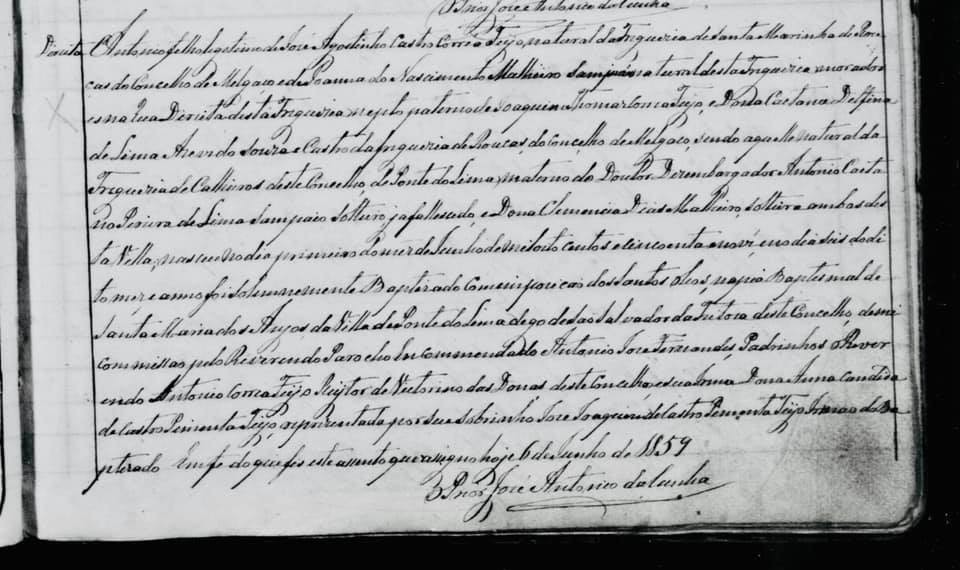 O Prior José Antonio da Cunha
Direita Antonio filho legitimo de José Agostinho Castro Correa Feijo, natural da Freguezia de Santa Marinha de Rou-
cas do Concelho de Melgaço e de Joanna do Nascimento Malheiro Sampaio natural desta Freguezia, morador
es na Rua Direita desta Freguezia, nepto paterno de Joaquim Thomaz Correa Feijo, e Dona Caetana Delfina
de Lima Azevedo Souza e Castro da freguezia de Roucas, do Concelho de Melgaço, sendo aquelle natural da
Freguezia de Calheiros deste Concelho, de Ponte do Lima, materno do Doutor Dezembargador Antonio Caeta
no Pereira de Lima Sampaio Solteiro, ja fallescido, e Dona Clemencia Dias Malheiro, solteira ambos des
ta Villa; nasceu no dia primeiro do mez de Junho de mil oito centos e cincoenta e nove, e no dia seis do di
to mez e anno foi solemnemente Baptezado com imposicao dos Santos Oleos, na pia Baptesmal de
Santa Maria dos Anjos, da Villa de Ponte do Lima, digo de Sao Salvador da Feitosa deste Concelho, de mi
commissao pelo Reverendo Parocho Encommendado Antonio José Fernandes, Padrinhos o Rever
endo Antonio Correa Feijo Reitor de Victorino das Donas deste Concelho, e sua Irma Dona Anna Candida
de Castro Pimenta Feijo, reprizentada por seu sobrinho José Joaquim de Castro Pimenta Feijo Irmao do Ba
ptezado Em fe do que fes este assento que assigno hoje 6 de Junho de 1859
O Prior José Antonio da Cunha